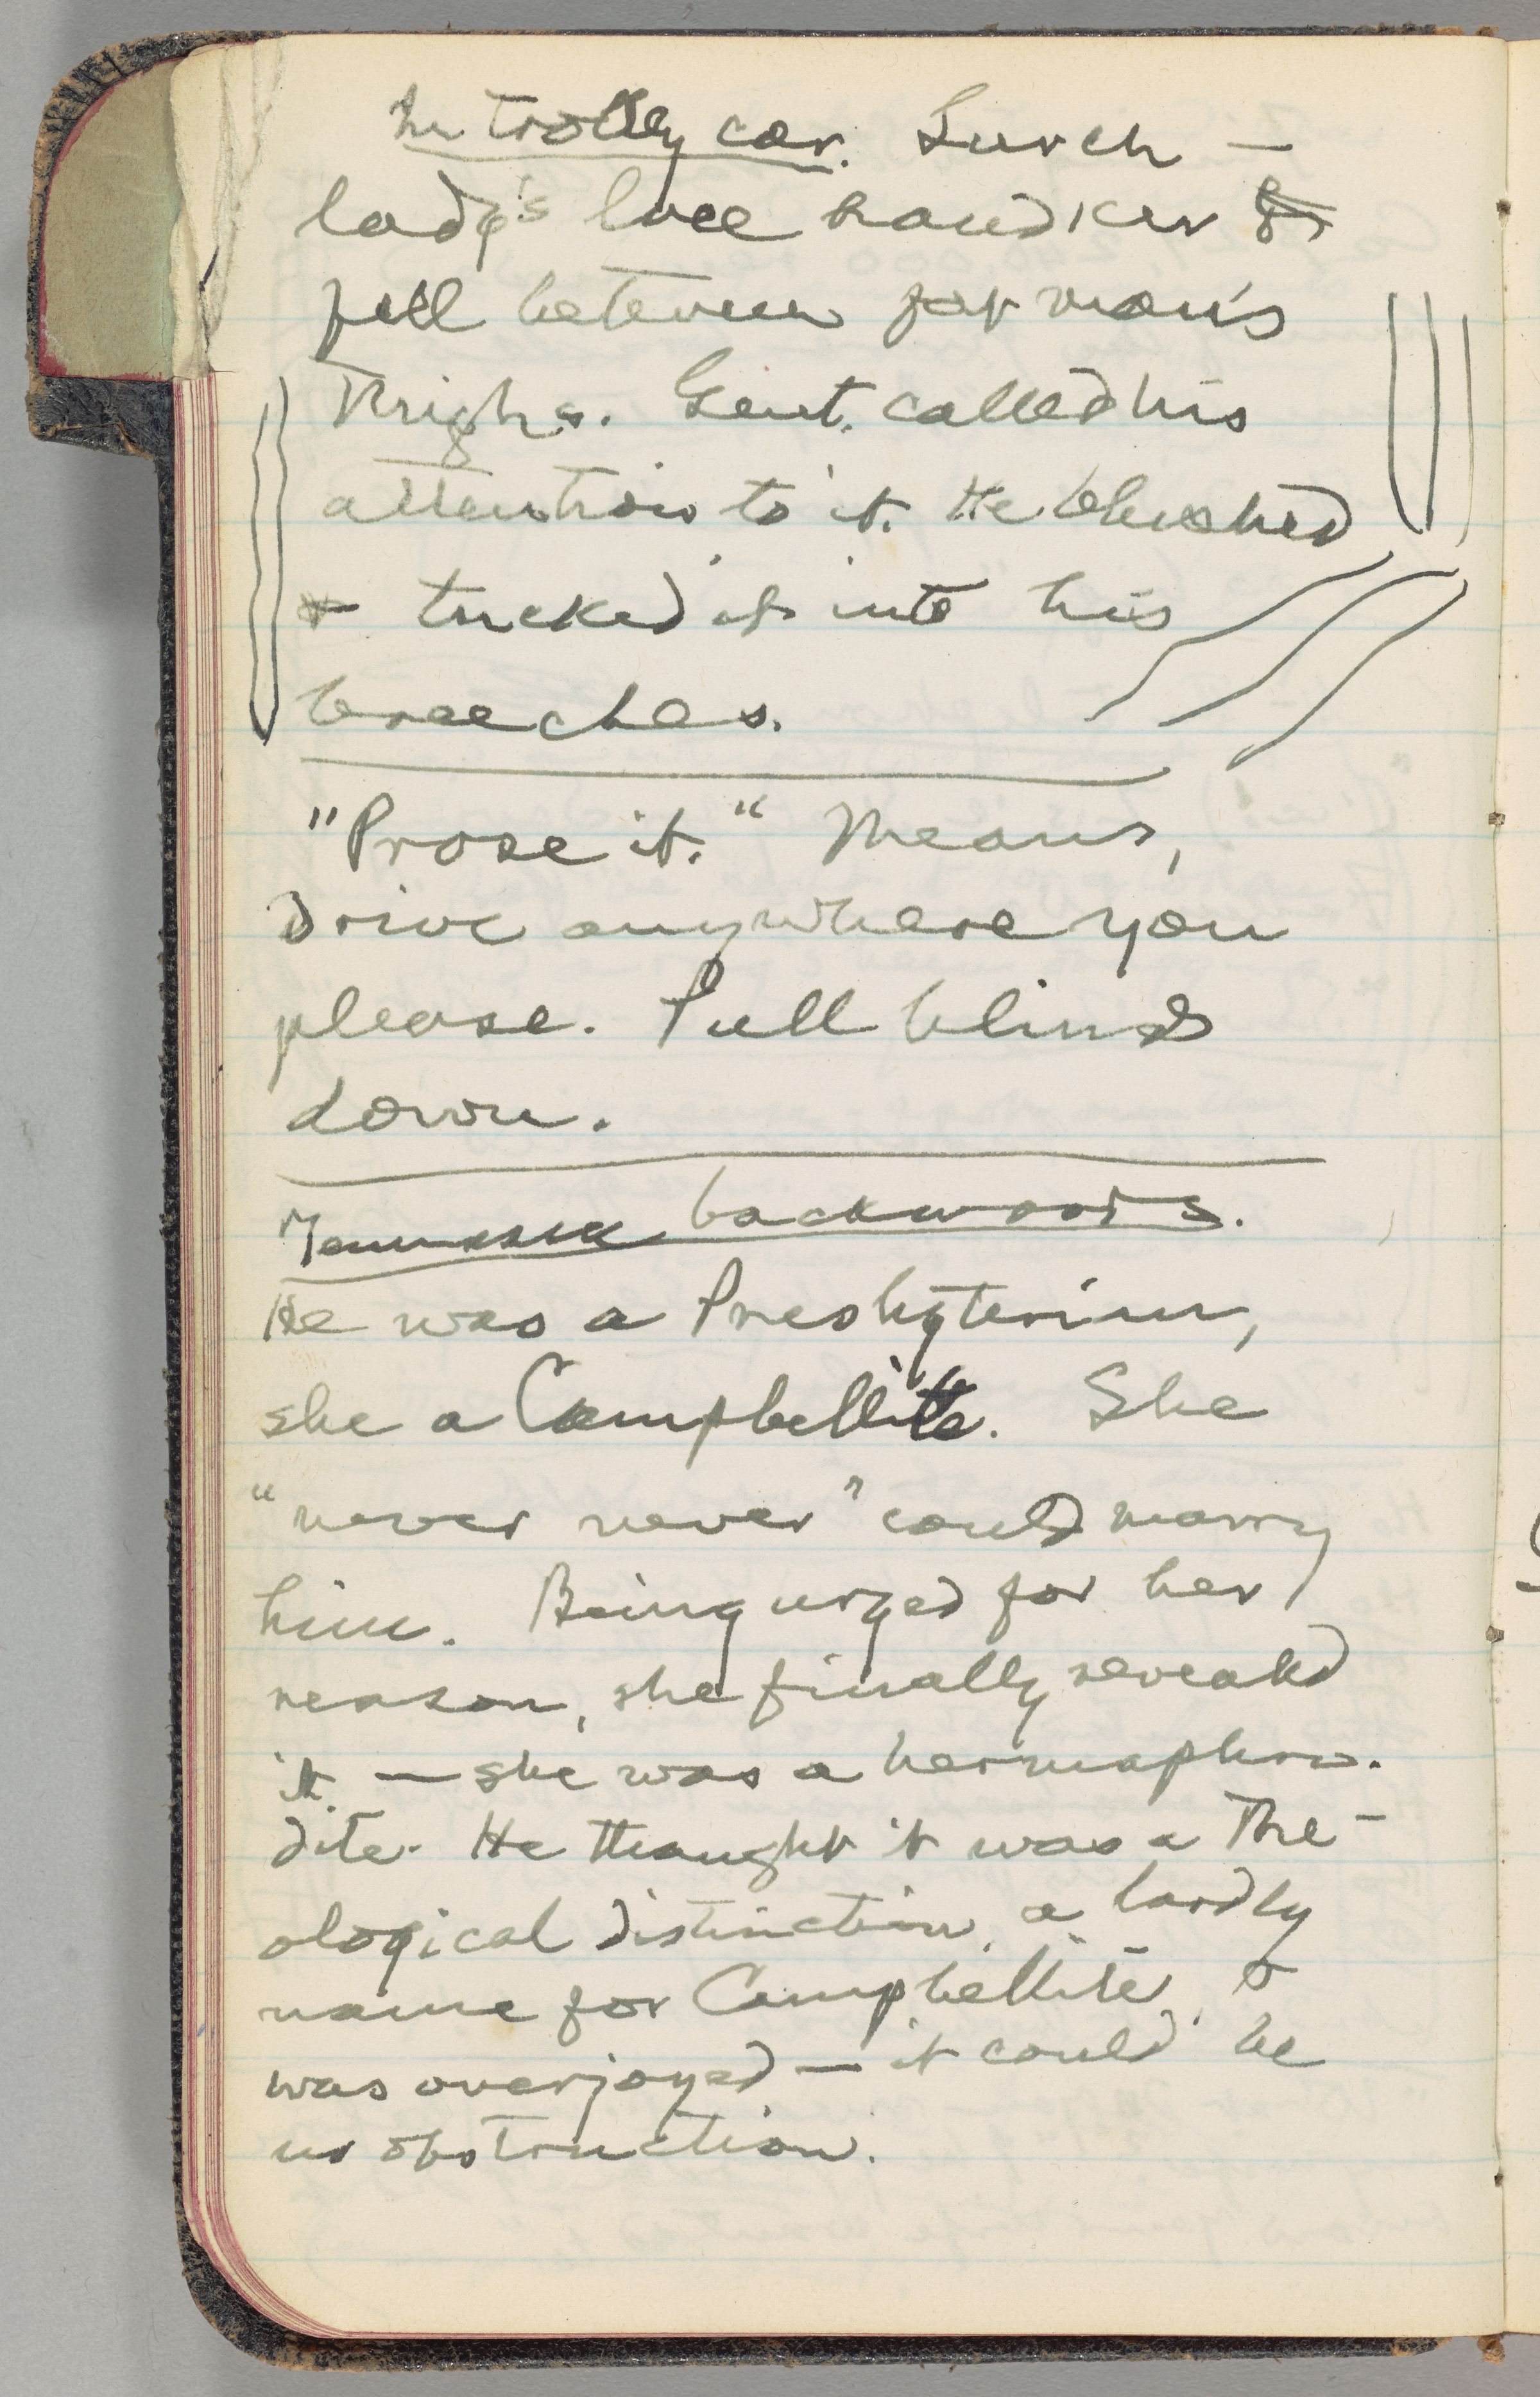 In trolley car. Lurch —
lady's lace handker &
fell between fat man's
thighs. Gent. called his
attention to it. He blushed
& tucked it into his
breeches.
"Prose it." Means,
drive anywhere you
please. Pull blinds
down.
Tennessee backwoods.
He was a Presbyterian,
she a Campbellite. She
"never never" could marry
him. Being urged for her
reason, she finally revealed
it — she was a hermaphro-
dite. He thought it was a The-
ological distinction, a
name for Campbellite, &
was overjoyed — it could be
no obstruction.